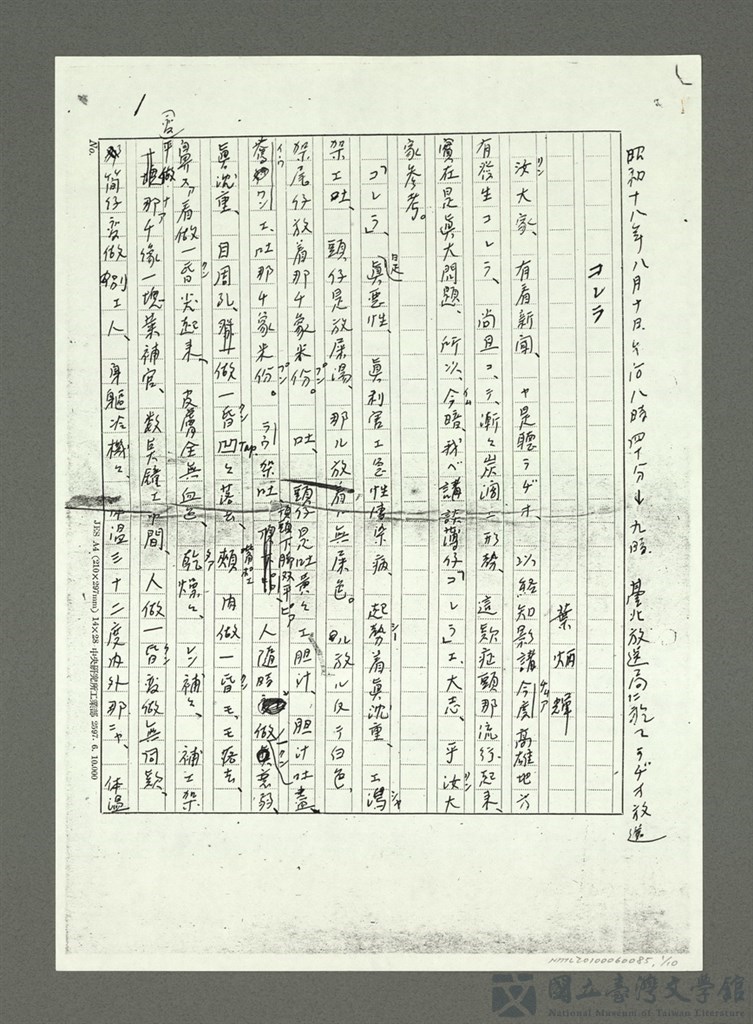 昭和十八年八月十日、午前八時四十分ヨリ九時 臺北放送局に於てラヂオ放送
コレラ
葉炳輝
汝大家、有看新聞、ヤ是聽ラヂオ、以経知影講今度高雄地方
有發生コレラ、尚且コ、テ、漸々炭濶工形勢、這欵症頭那流行起來、
實在是真大問題、所以、今暗、我ベ講談薄仔「コレラ」エ大志、乎汝大
家參考。
コレラ」是真悪性、真利害工急性傳染病、起勢着真沈重、工瀉
架工吐、頭仔是放屎湯、那ル放着ハ無屎色。ル放ル反テ白色、
架尾仔放着那チ象米份。吐、頭仔是吐黄々工胆汁、胆汁吐盡、
工吐那チ象米份。 架吐、人隨時做真衰弱、
真沈重、目周孔、做一昏凹々落去、頰肉做一昏モ、モ痞去、
鼻做一昏尖起来、皮膚全無血色、乾燥々、レン補々、補工架
那チ像一塊葉補官、数点鐘工中間、人做一昏変做無同欵、
筒仔変做別工人、身軀冷機々、体温三十二度内外那ニャ、体温
No.
JES A4 (210×297mm) 14×28 中央研究所工業部 2597. 6. 10,000
NMTL20100060085, 1/10
國立臺灣文學館
National Museum of Taiwan Literature